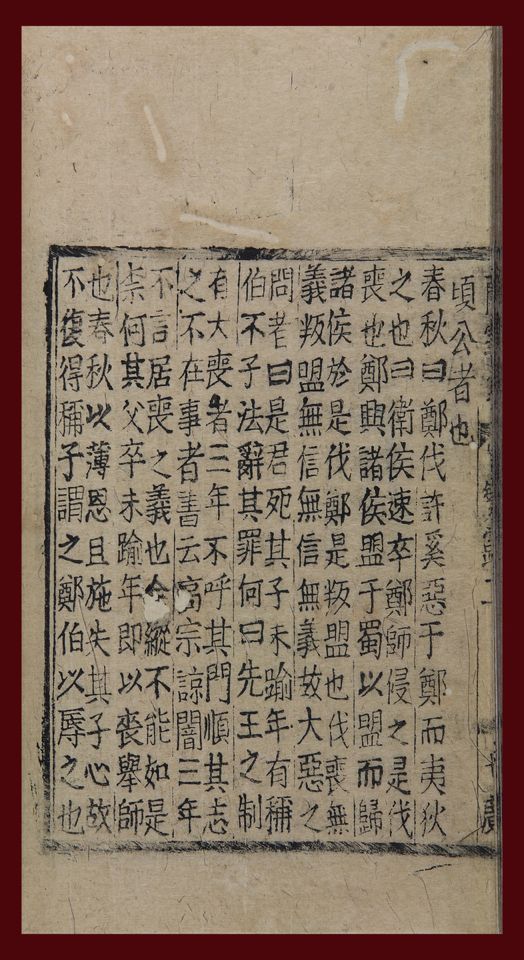 頃公者也
春秋曰鄭伐許奚惡于鄭而夷狄
之也曰衛侯速卒鄭師侵之是伐
喪也鄭與諸侯盟于蜀以盟而歸
諸侯於是伐鄭是叛盟也伐喪無
義叛盟無信無信無義故大惡之
問者曰是君死其子未踰年有稱
伯不子法辭其罪何曰先王之制
有大喪者三年不呼其門順其志
之不在事者書云高宗諒闇三年
不言居喪之義也今縱不能如是
柰何其父卒未踰年即以喪舉師
也春秋以薄恩且施失其子心故
不復得稱子謂之鄭伯以辱之也